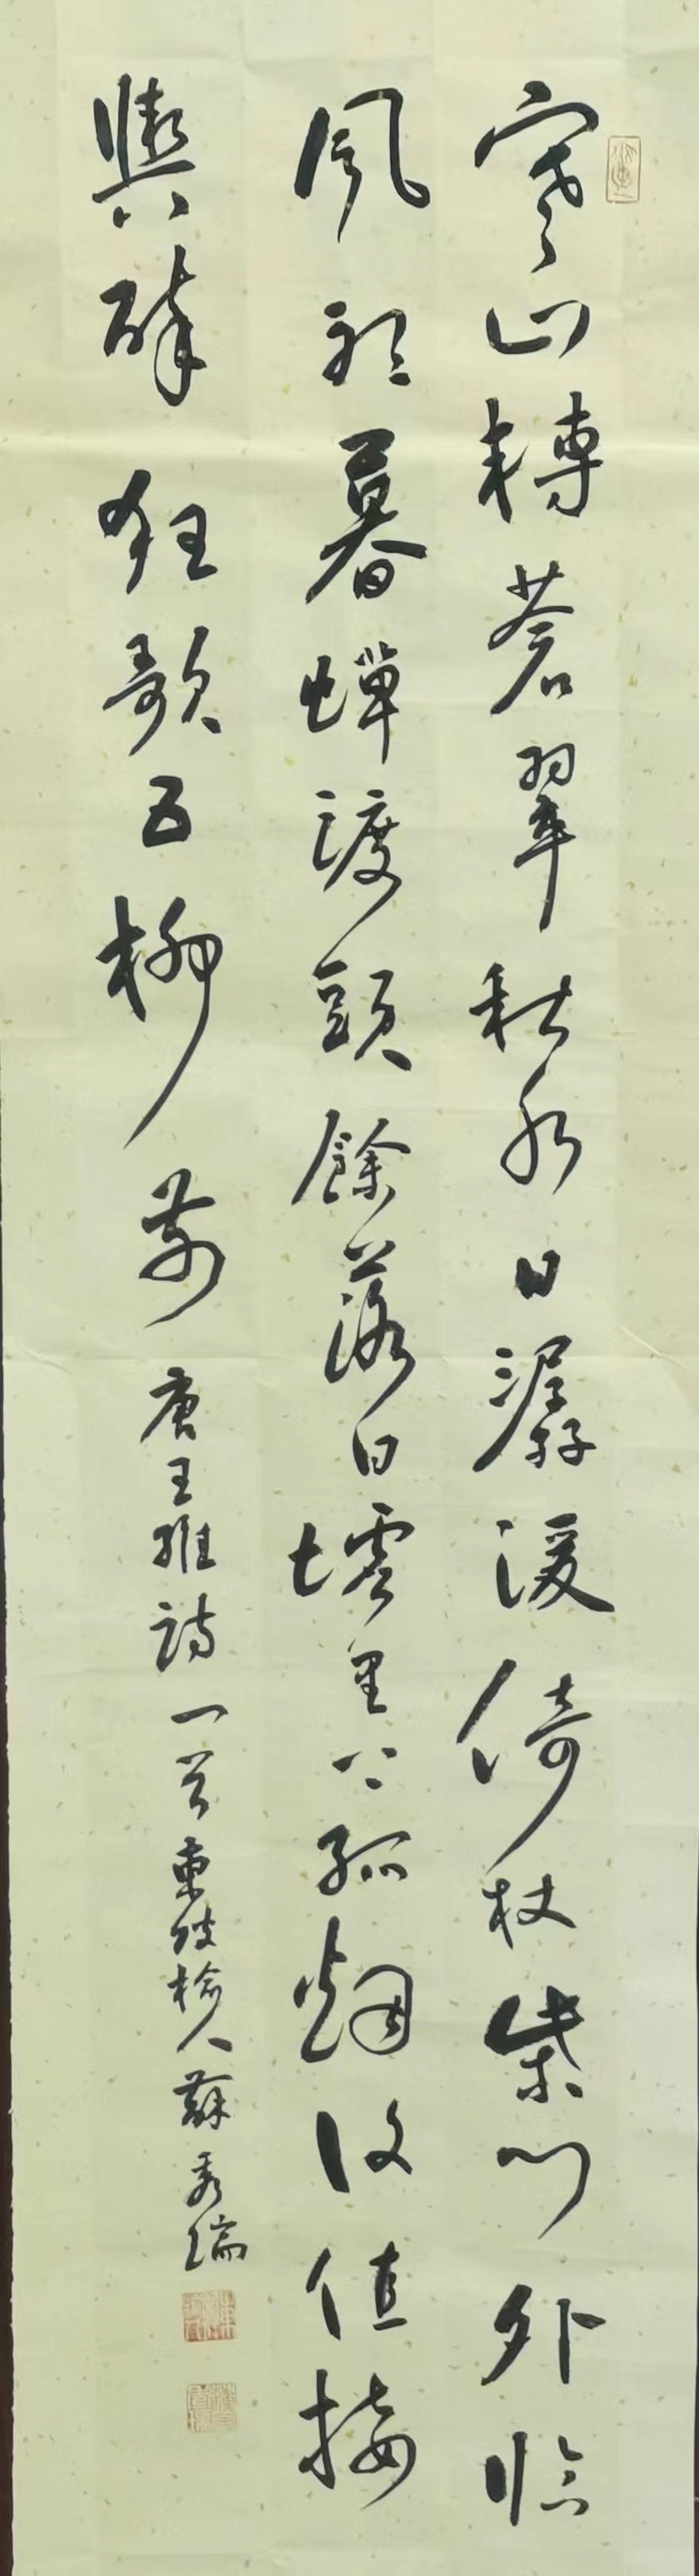 寒山轉蒼翠秋水日潺湲倚杖柴門外臨
風聽暮蟬渡頭餘落日墟里上孤烟復值接
輿醉狂歌五柳前 唐王維詩一首東坡人蘇秀瑞